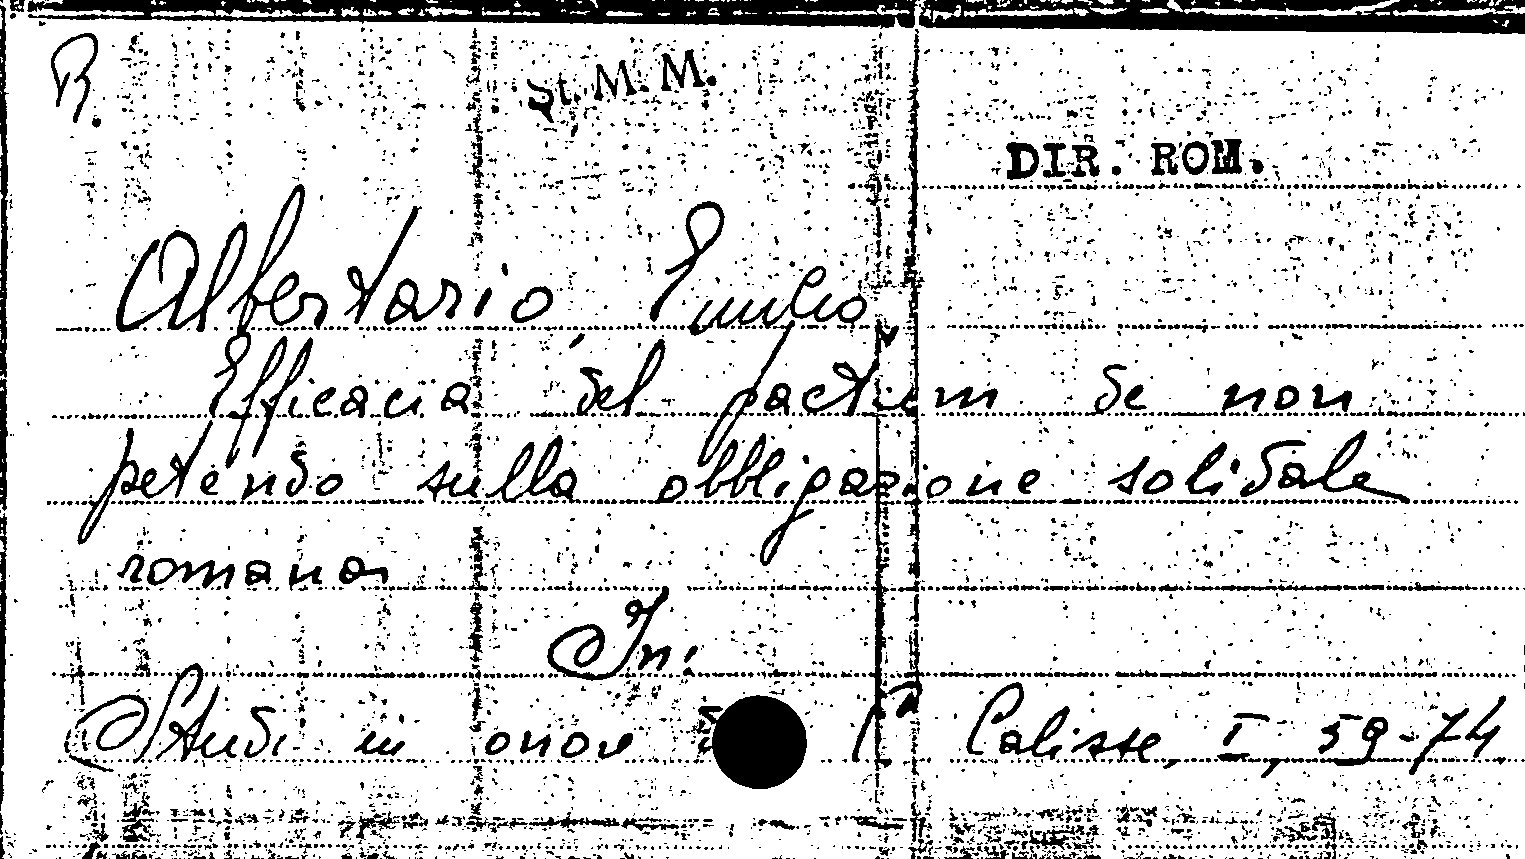 R.
St. M. M.
DIR. ROM.
Albertario, Emilio
Efficacia del pactum de non
petendo sulla obbligazione solidale
romana
In:
Studi in onore P. Calisse, I, 59-74